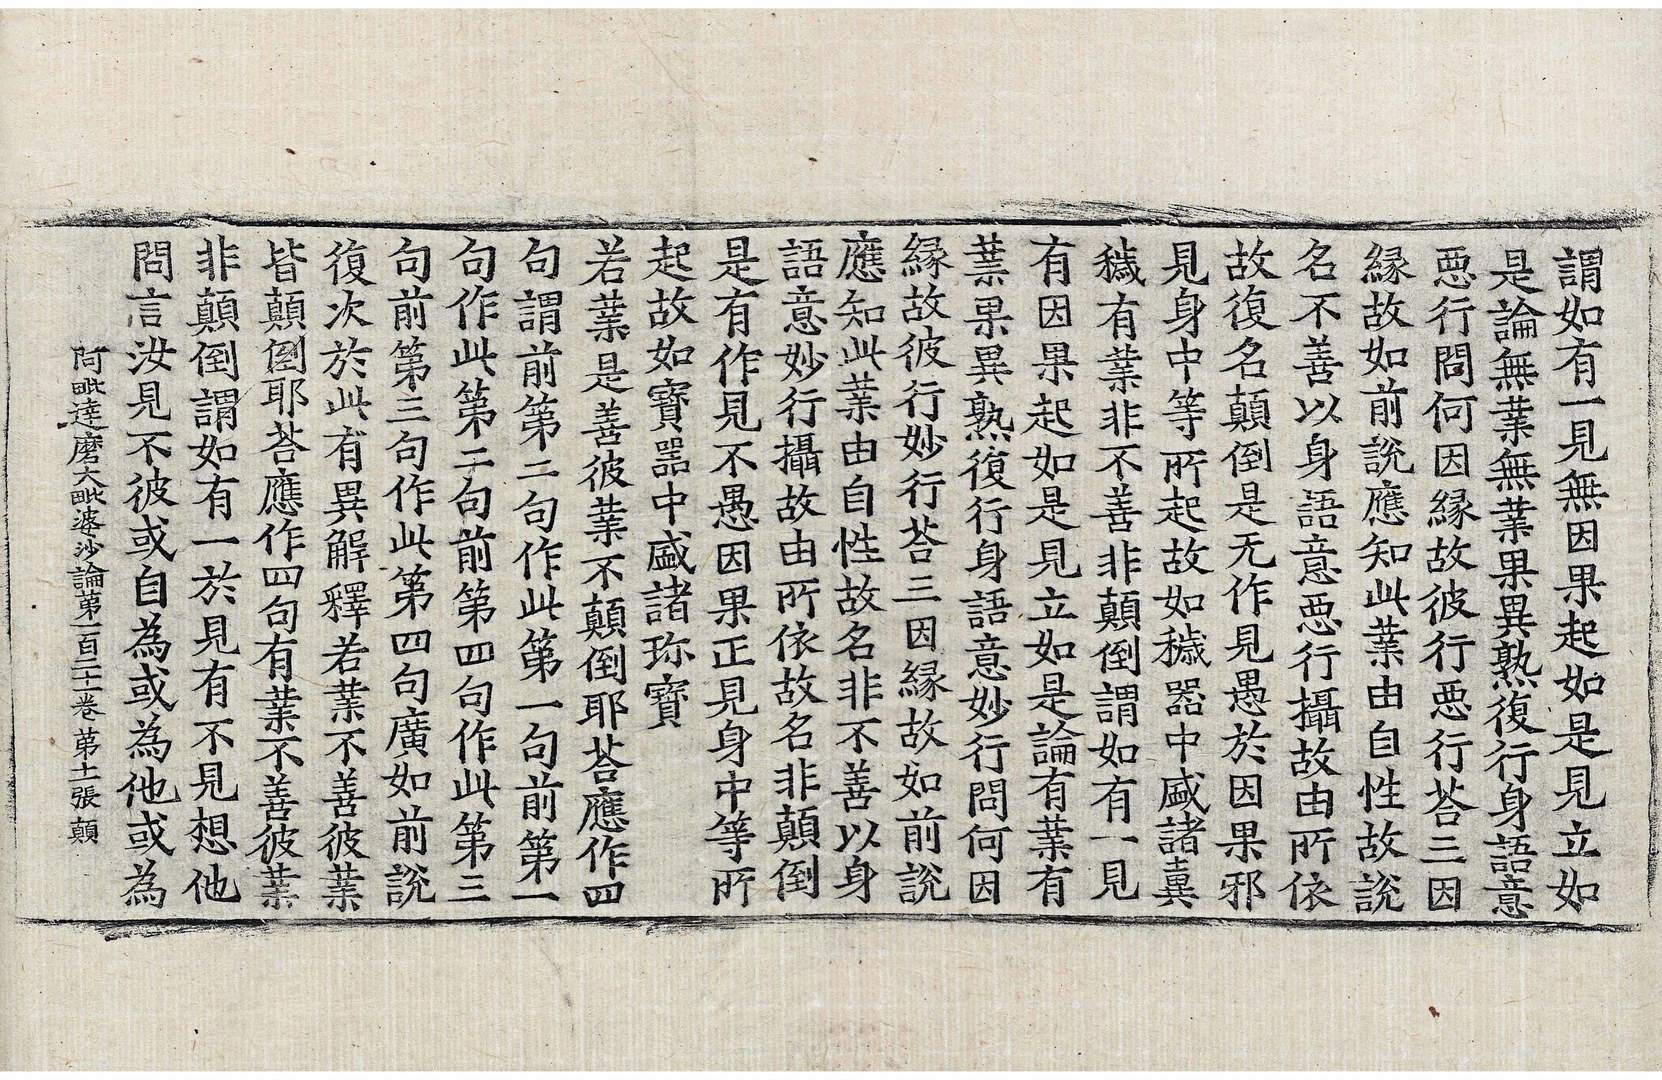 謂如有一見無因果起如是見立如
是論無業無業果異熟復行身語意
惡行問何因緣故彼行惡行荅三因
緣故如前說應知此業由自性故說
名不善以身語意惡行攝故由所依
故復名顛倒是无作見愚於因果邪
見身中等所起故如穢器中盛諸糞
穢有業非不善非顛倒謂如有一見
有因果起如是見立如是論有業有
業果異熟復行身語意妙行問何因
緣故彼行妙行荅三因緣故如前說
應知此業由自性故名非不善以身
語意妙行攝故由所依故名非顛倒
是有作見不愚因果正見身中等所
起故如寶器中盛諸珎寶
若業是善彼業不顛倒耶荅應作四
句謂前第二句作此第一句前第一
句作此第二句前第四句作此第三
句前第三句作此第四句廣如前說
復次於此有異解釋若業不善彼業
皆顛倒耶荅應作四句有業不善彼業
非顛倒謂如有一於見有不見想他
問言汝見不彼或自為或為他或為
阿毗達磨大毗婆沙論第一百二十一卷 第十張 顛